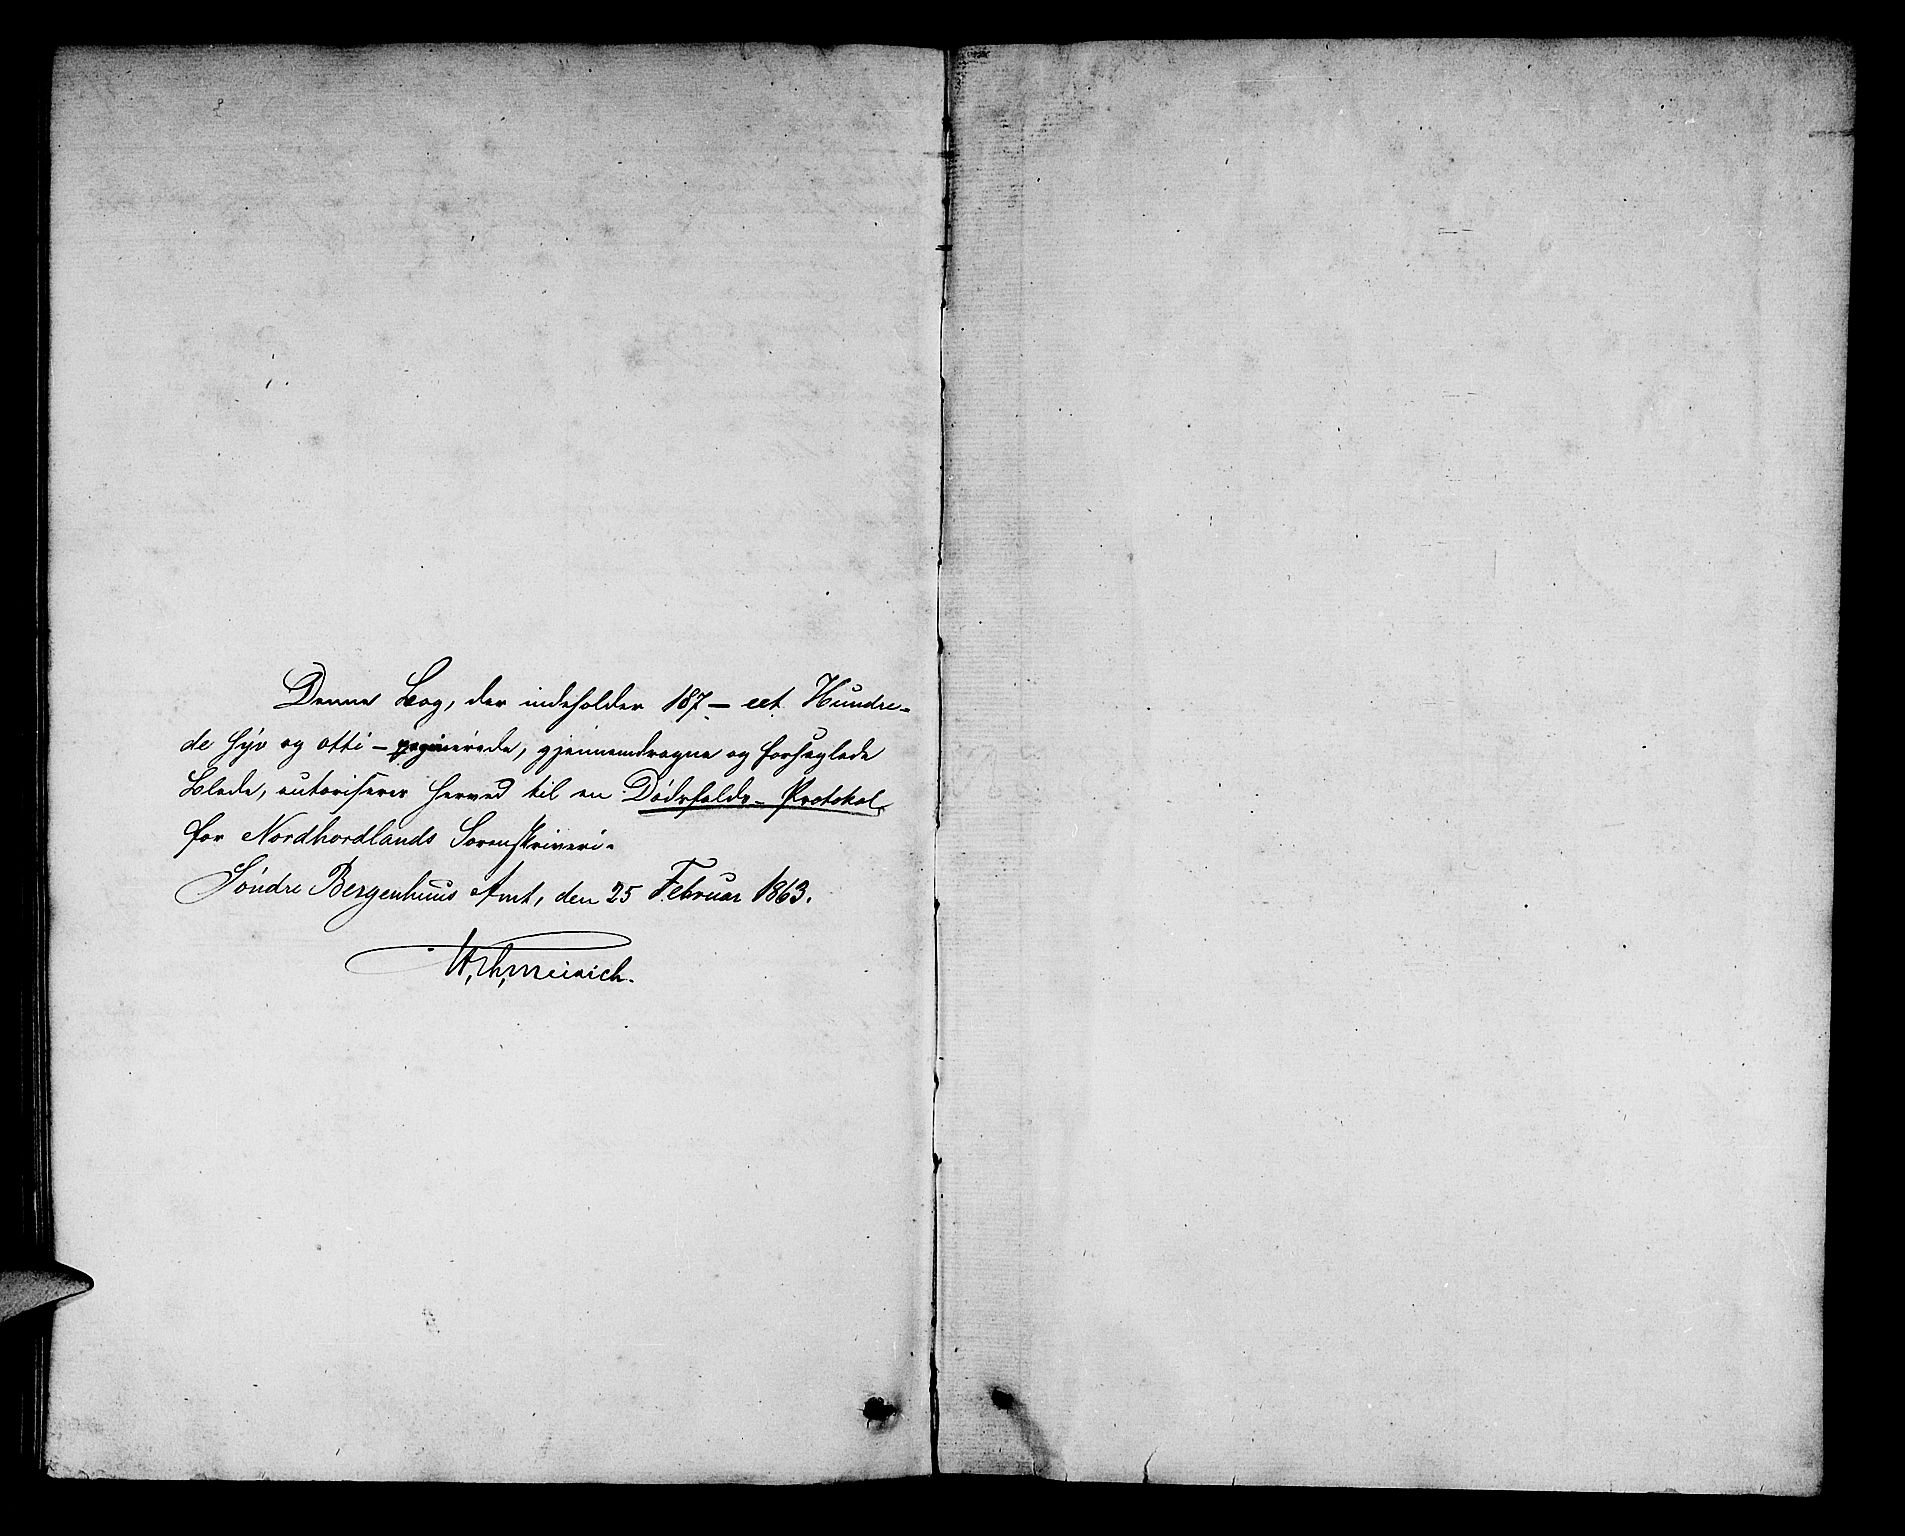 Denne Bog, der indeholder 187 – eet Hundre-
de syv og otti – paginerede, gjennemdragne og forseglede
Blade, autoriseres herved til en Dødsfalds-Protokol
for Nordhordlands Sorenskriveri.
Søndre Bergenhuus Amt, den 25 Februar 1863.